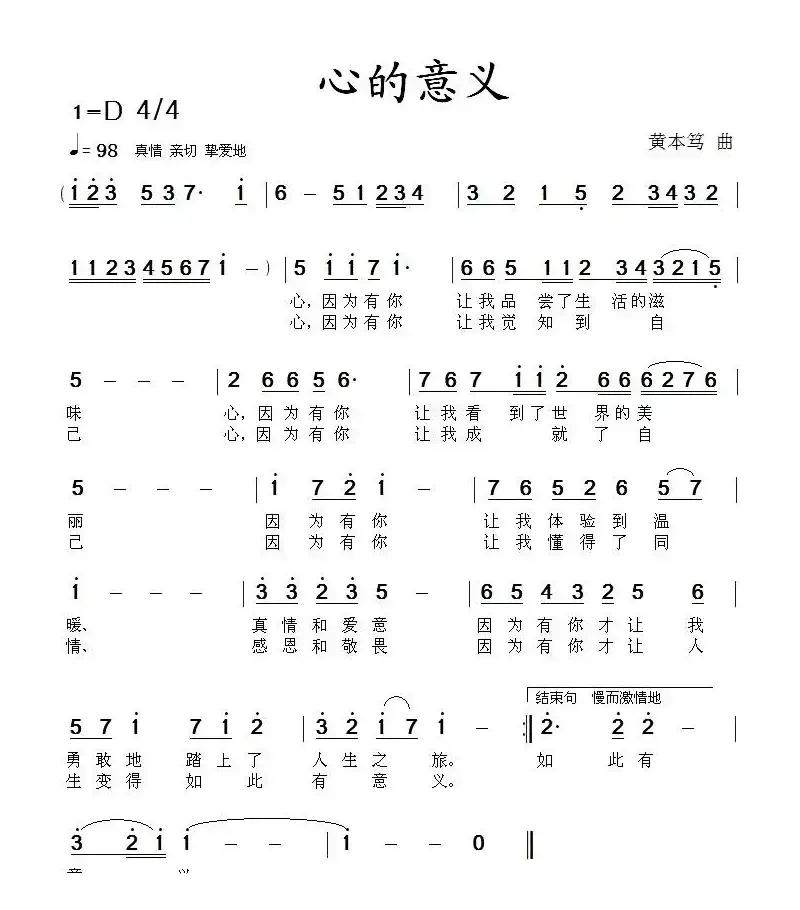 心的意义
1=D 4/4
黄本笃 曲
♩=98 真情 亲切 挚爱地
( 1 2 3 5 3 7· 1 | 6 – 5 1 2 3 4 | 3 2 1 5 2 3 4 3 2 |
1 1 2 3 4 5 6 7 1 – ) | 5 1 1 7 1· | 6 6 5 1 1 2 3 4 3 2 1 5 |
心,因为有你 让我品 尝了生 活的滋
心,因为有你 让我觉 知到 自
5 – – – | 2 6 6 5 6· | 7 6 7 1 1 2 6 6 6 2 7 6 |
味 心,因为有你 让我看 到了世 界的美
己 心,因为有你 让我成 就了自
5 – – – | 1 7 2 1 – | 7 6 5 2 6 5 7 |
丽 因为有你 让我体验到温
己 因为有你 让我懂得了同
1 – – – | 3 3 2 3 5 – | 6 5 4 3 2 5 6 |
暖、 真情和爱意 因为有你才让我
情、 感恩和敬畏 因为有你才让人
结束句 慢而激情地
5 7 1 7 1 2 | 3 2 1 7 1 – :‖ 2· 2 2 – |
勇敢地 踏上了 人生之旅。 如 此有
生变得 如此 有意义。
3 2 1 1 – – | 1 – – 0 ‖